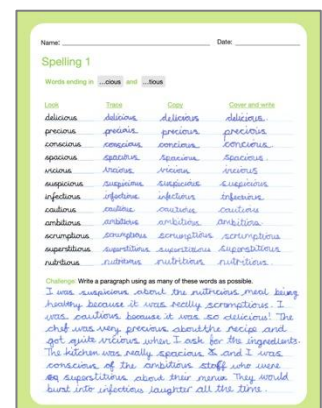 Name: Date:
Spelling 1
Words ending in ...cious and ...tious
Look Trace Copy Cover and write
delicious delicious delicious delicious.
precious precious precious precious
conscious conscious concious concious.
spacious spacious spacious spacious.
vicious vicious vicious vicious
suspicious suspicious suspicious suspicious
infectious infectious infectious infectious.
cautious cautious cautious cautiou
ambitious ambitious ambitious ambitius.
scrumptious scrumptious scrumptious scrumptious
superstitious superstitious superstitious superstitious.
nutritious nutritious nutrition nutritious
Challenge Write a paragraph using as many of these words as possible.
I was suspicious about the nutricious meal being
healthy because it was really scromptious. I
was cautious because it was so delicious! The
chef was very precious about the recipe and
got quite vicious when I ask for the ingredients.
The kitchen was really spacious & and I was
conscious of the ambitious staff who were
superstitious about their menus. They would
burst into infectious laughter all the time.